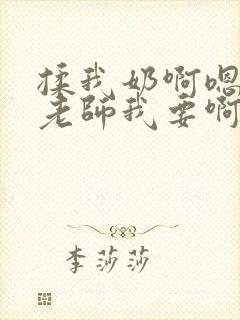 揉我奶啊嗯
老師我要啊
李莎莎